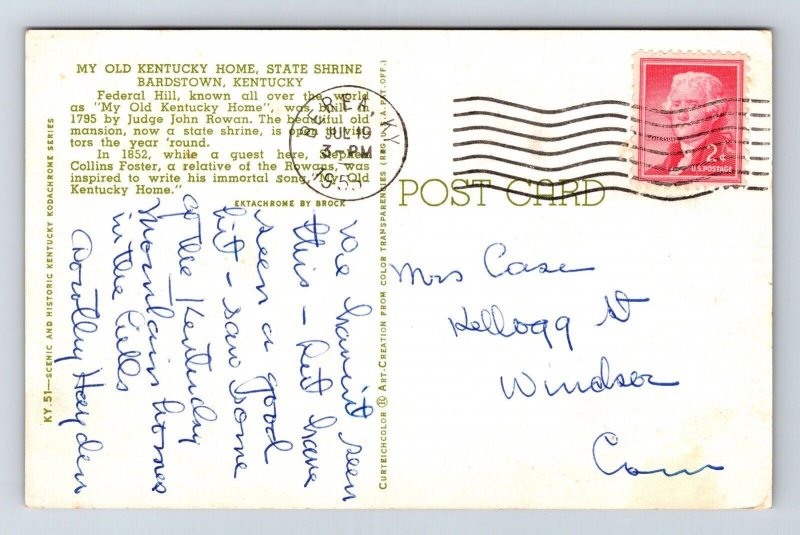 MY OLD KENTUCKY HOME, STATE SHRINE
BARDSTOWN, KENTUCKY
Federal Hill, known all over the world
as "My Old Kentucky Home", was built in
1795 by Judge John Rowan. The beautiful old
mansion, now a state shrine, is open to visi-
tors the year 'round.
In 1852, while a guest here, Stephen
Collins Foster, a relative of the Rowans, was
inspired to write his immortal song, "My Old
Kentucky Home."
EKTACHROME BY BROCK
KY.51—SCENIC AND HISTORIC KENTUCKY KODACHROME SERIES
We haven't seen
this – but have
seen a good
bit – saw some
of the Kentucky
Mountain homes
in the hills
Dorothy Hayden
CURTEICHCOLOR ® ART-CREATION FROM COLOR TRANSPARENCIES (REG. U.S.A. PAT. OFF.)
BEREA, KY.
JUL 19
3-PM
1955
2¢
U.S. POSTAGE
POST CARD
Mrs Case
Kellogg St
Windsor
Conn